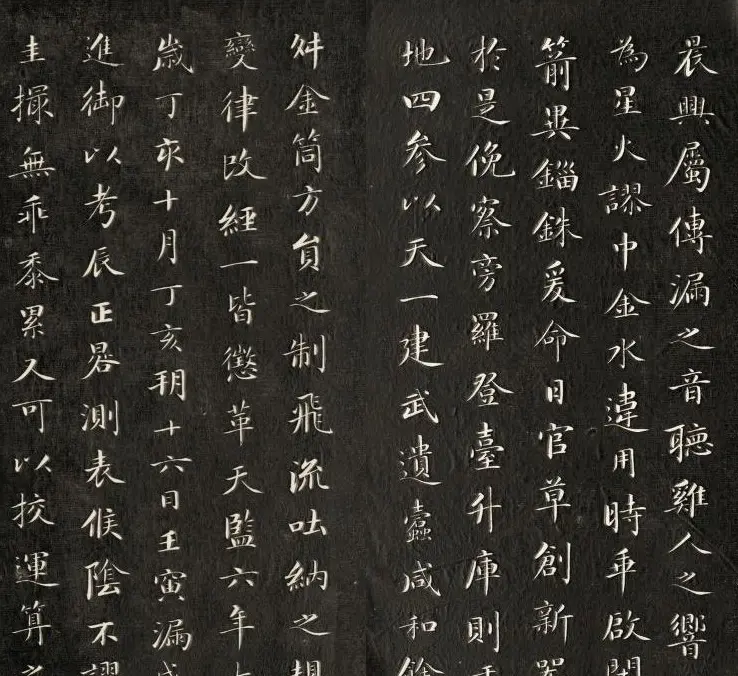 晨興屬傳漏之音聽雞人之響
為星火謬中金水違用時乖啟
箭異錙銖爰命日官草創新器
於是俛察旁羅登臺升庫則
地四參以天一建武遺蠹咸和餘
舛金筒方員之制飛流吐納之規
變律改經一皆懲革天監六年
歲丁亥十月丁亥朔十六日壬寅漏成
進御以考辰正晷測表候陰不謬
圭撮無乖黍累又可以挍運算之